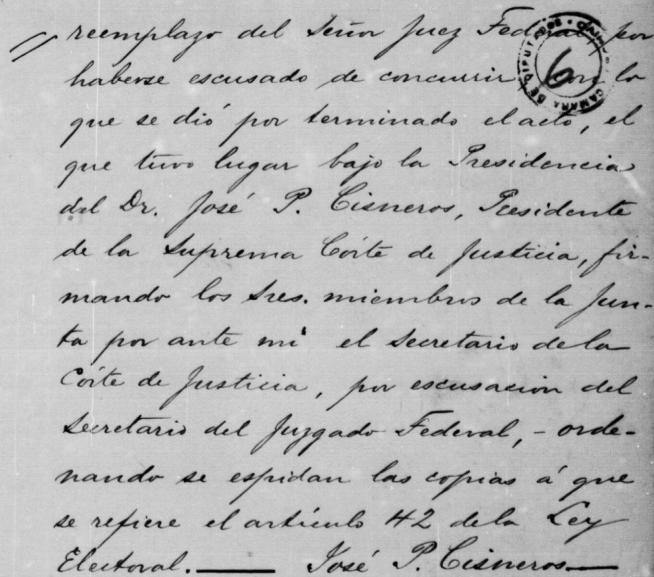 reemplazo del Señor Juez Federal, por
haberse escusado de concurrir con lo
que se dió por terminado el acto, el
que tuvo lugar bajo la Presidencia
del Dr. José P. Cisneros, Presidente
de la Suprema Córte de Justicia, fir-
mando los Sres. miembros de la Jun-
ta por ante mi el Secretario de la
Córte de Justicia, por escusación del
Secretario del Juzgado Federal, - orde-
nando se espidan las copias á que
se refiere el artículo 42 de la Ley
Electoral.——— José P. Cisneros—
CAMARA DE DIPUTADOS
6